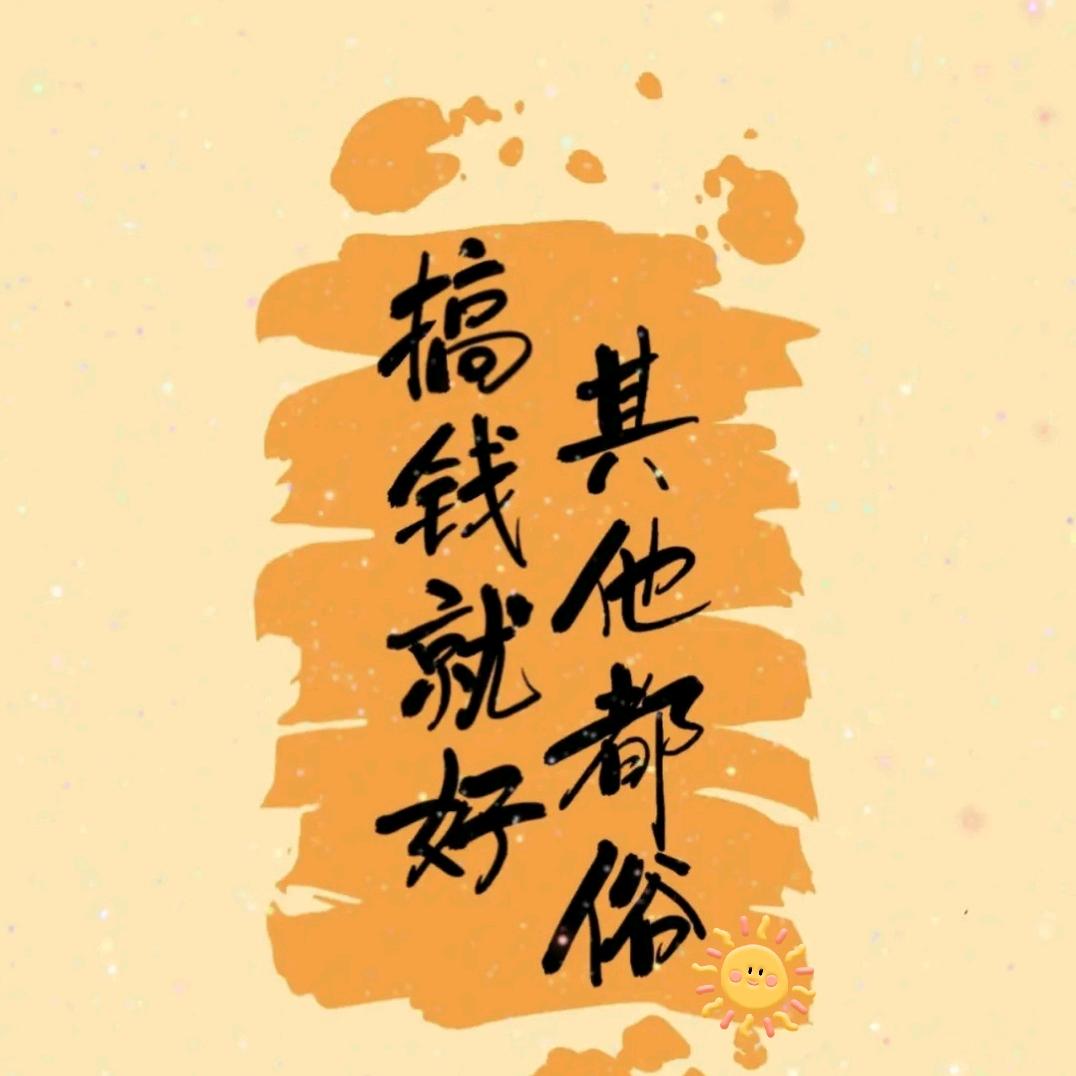 搞钱就好
其他都俗